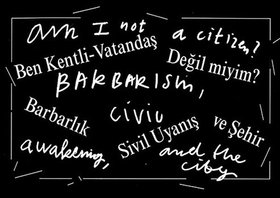 am I not a citizen?
Ben Kentli-Vatandaş Değil miyim?
BARBARISM,
Barbarlık
civic
Sivil Uyanış ve Şehir
awakening,
and the city